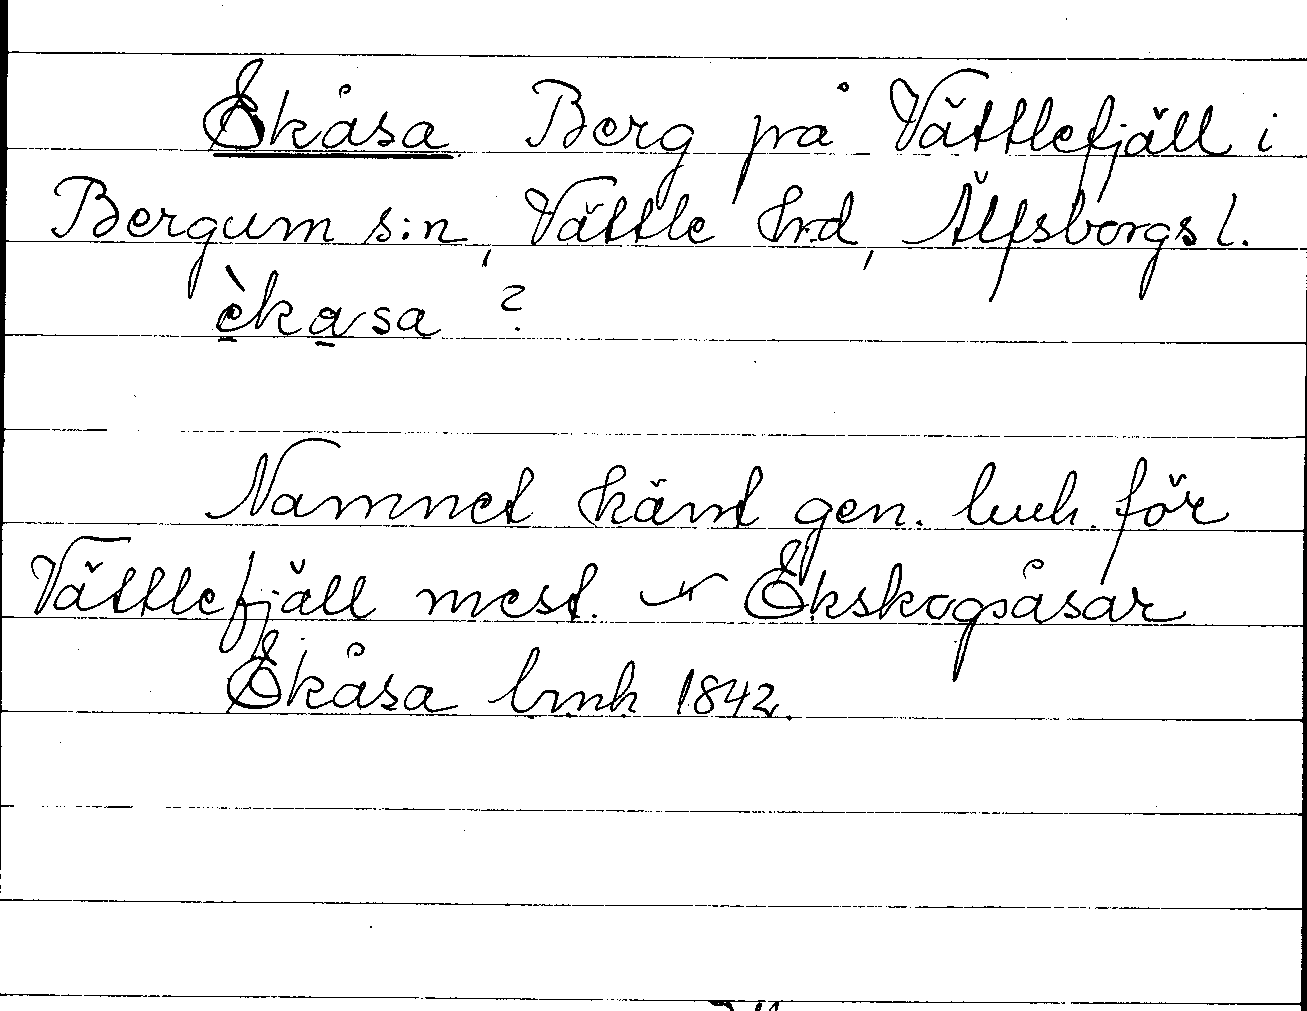 Ekåsa Berg på Vättlefjäll i
Bergum s:n, Vättle hrd, Älfsborgs l.
èkasa ?
Namnet känt gen. lmh. för
Vättlefjäll mest. Ekskogsåsar
Ekåsa lmh 1842.